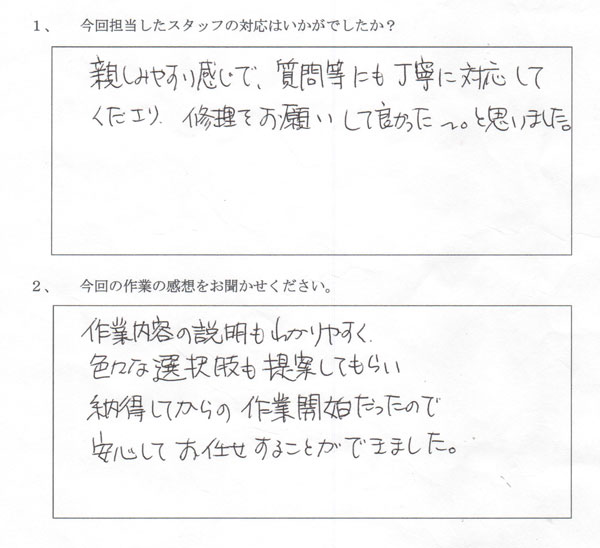 1、 今回担当したスタッフの対応はいかがでしたか？
親しみやすい感じで、質問等にも丁寧に対応して
くださり、修理をお願いして良かった〜。と思いました。
2、 今回の作業の感想をお聞かせください。
作業内容の説明もわかりやすく、
色々な選択肢も提案してもらい
納得してからの作業開始だったので
安心してお任せすることができました。